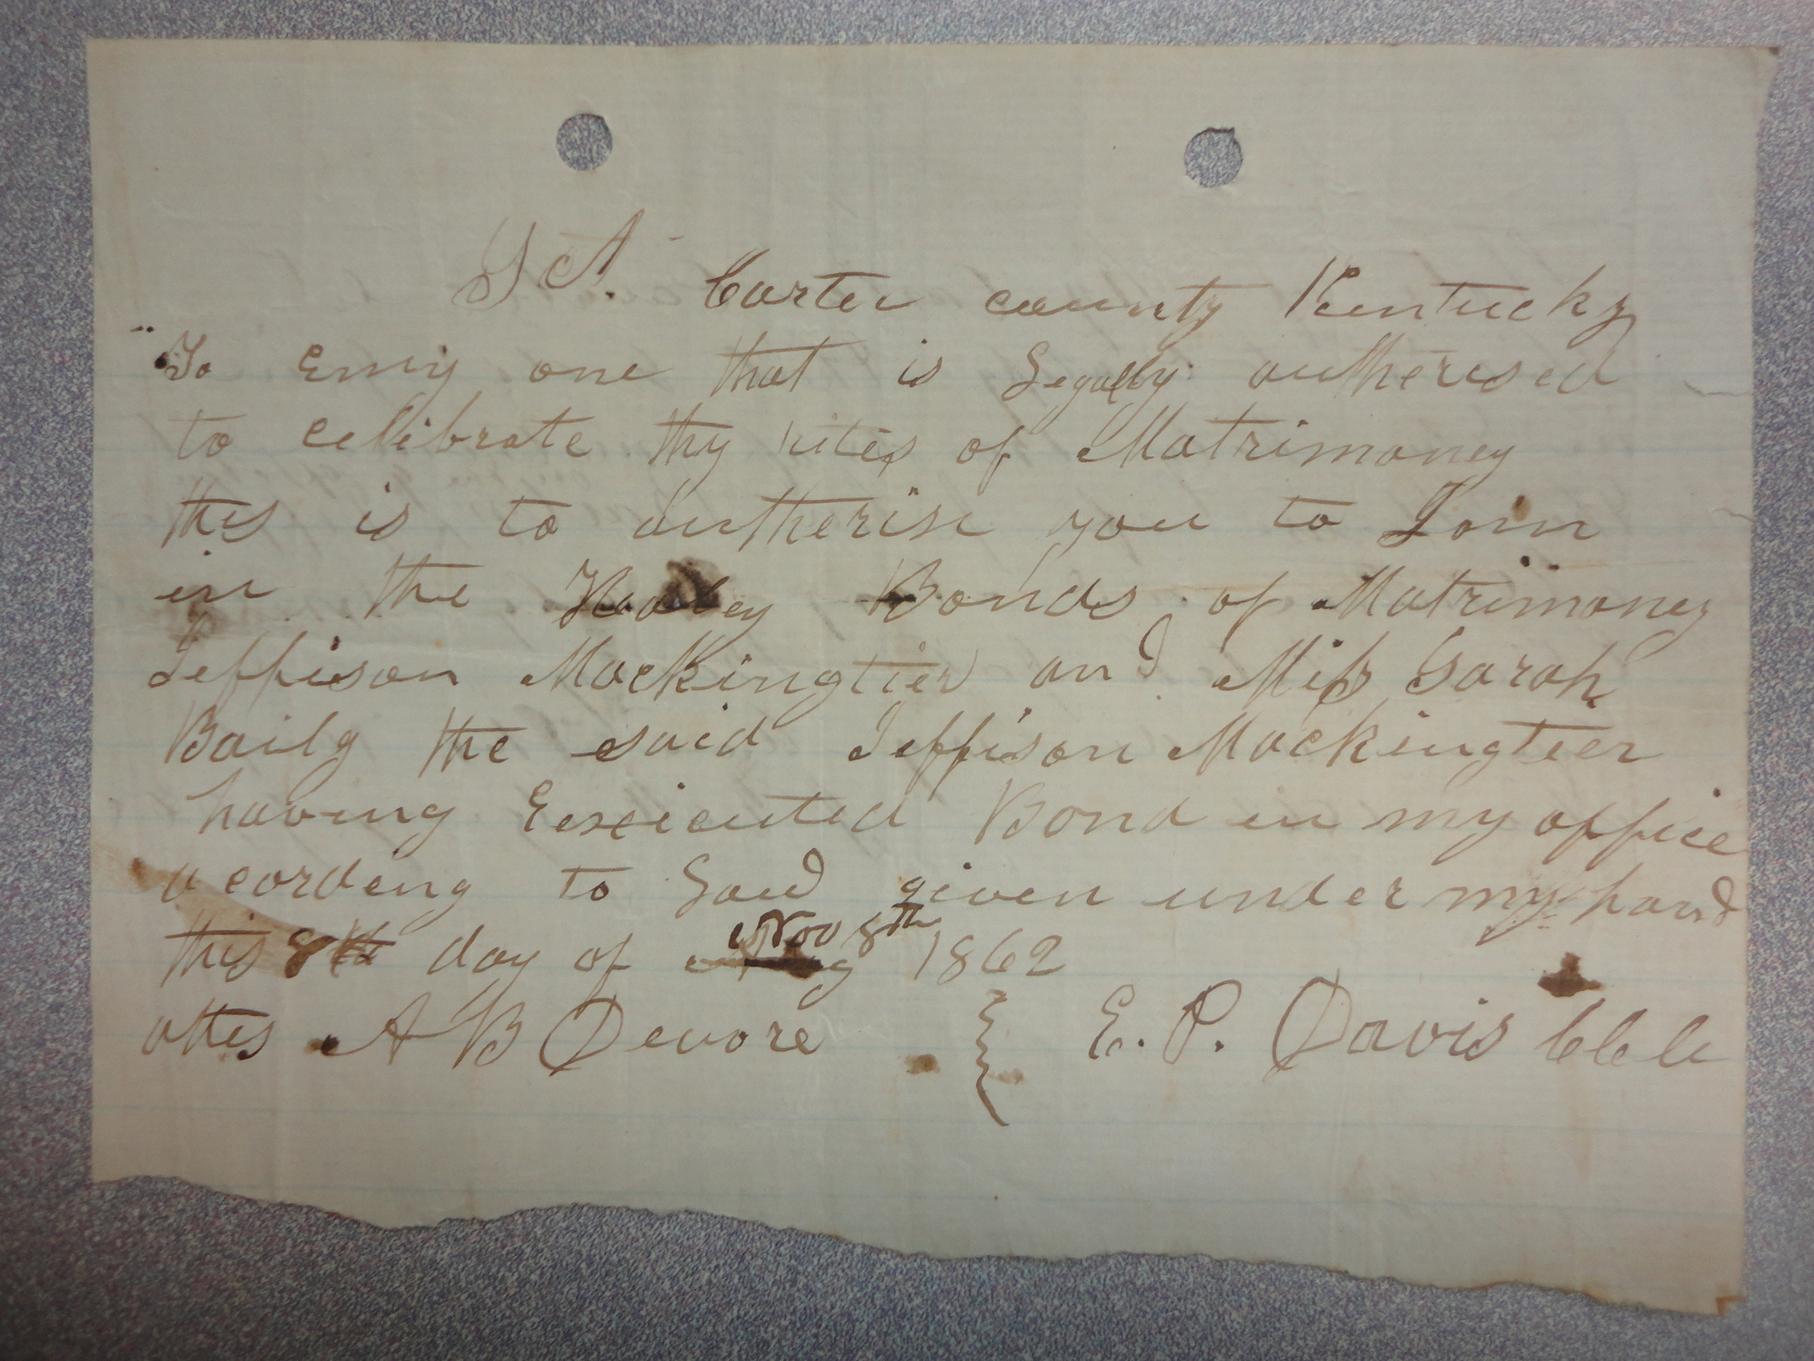 SCt. Carter county Kentucky
To Eny one that is Legally autherised
to celibrate thy rites of Matrimoney
this is to autherise you to Join
in the Holey Bonds of Matrimoney
Jeffison Mockingtier and Miss Sarah
Baily the said Jeffison Mockingteer
having Exeicuted Bond in my office
acordeng to Law given under my hand
this 8th day of Nov 8th 1862
attes A B Devore } E. P. Davis CCC